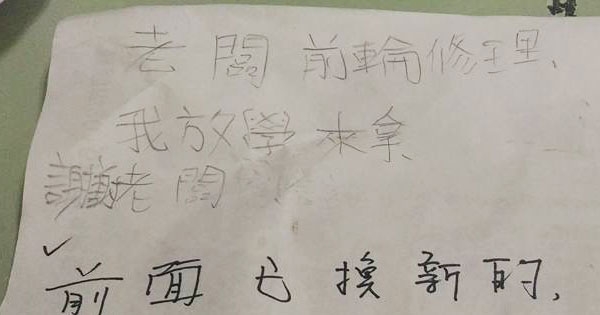 老闆前輪修理、
我放學來拿
謝謝老闆
前面已換新的,